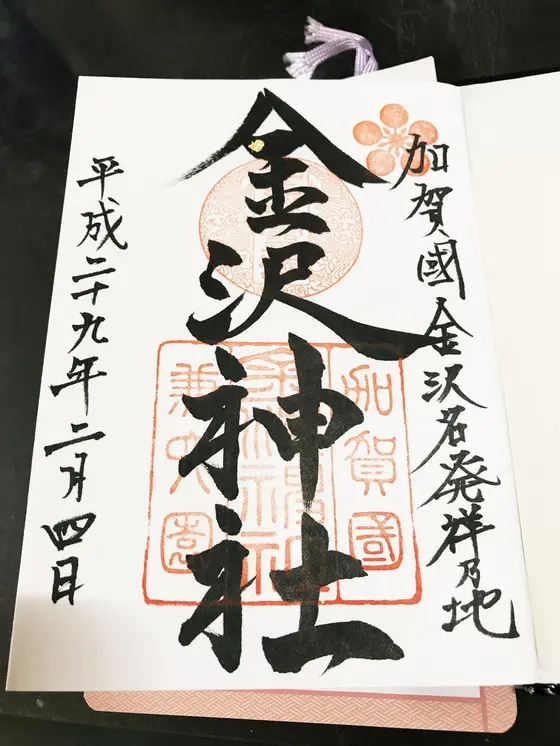 加賀國金沢名発祥乃地
金沢神社
加賀國
金沢神社
兼六園
平成二十九年二月四日